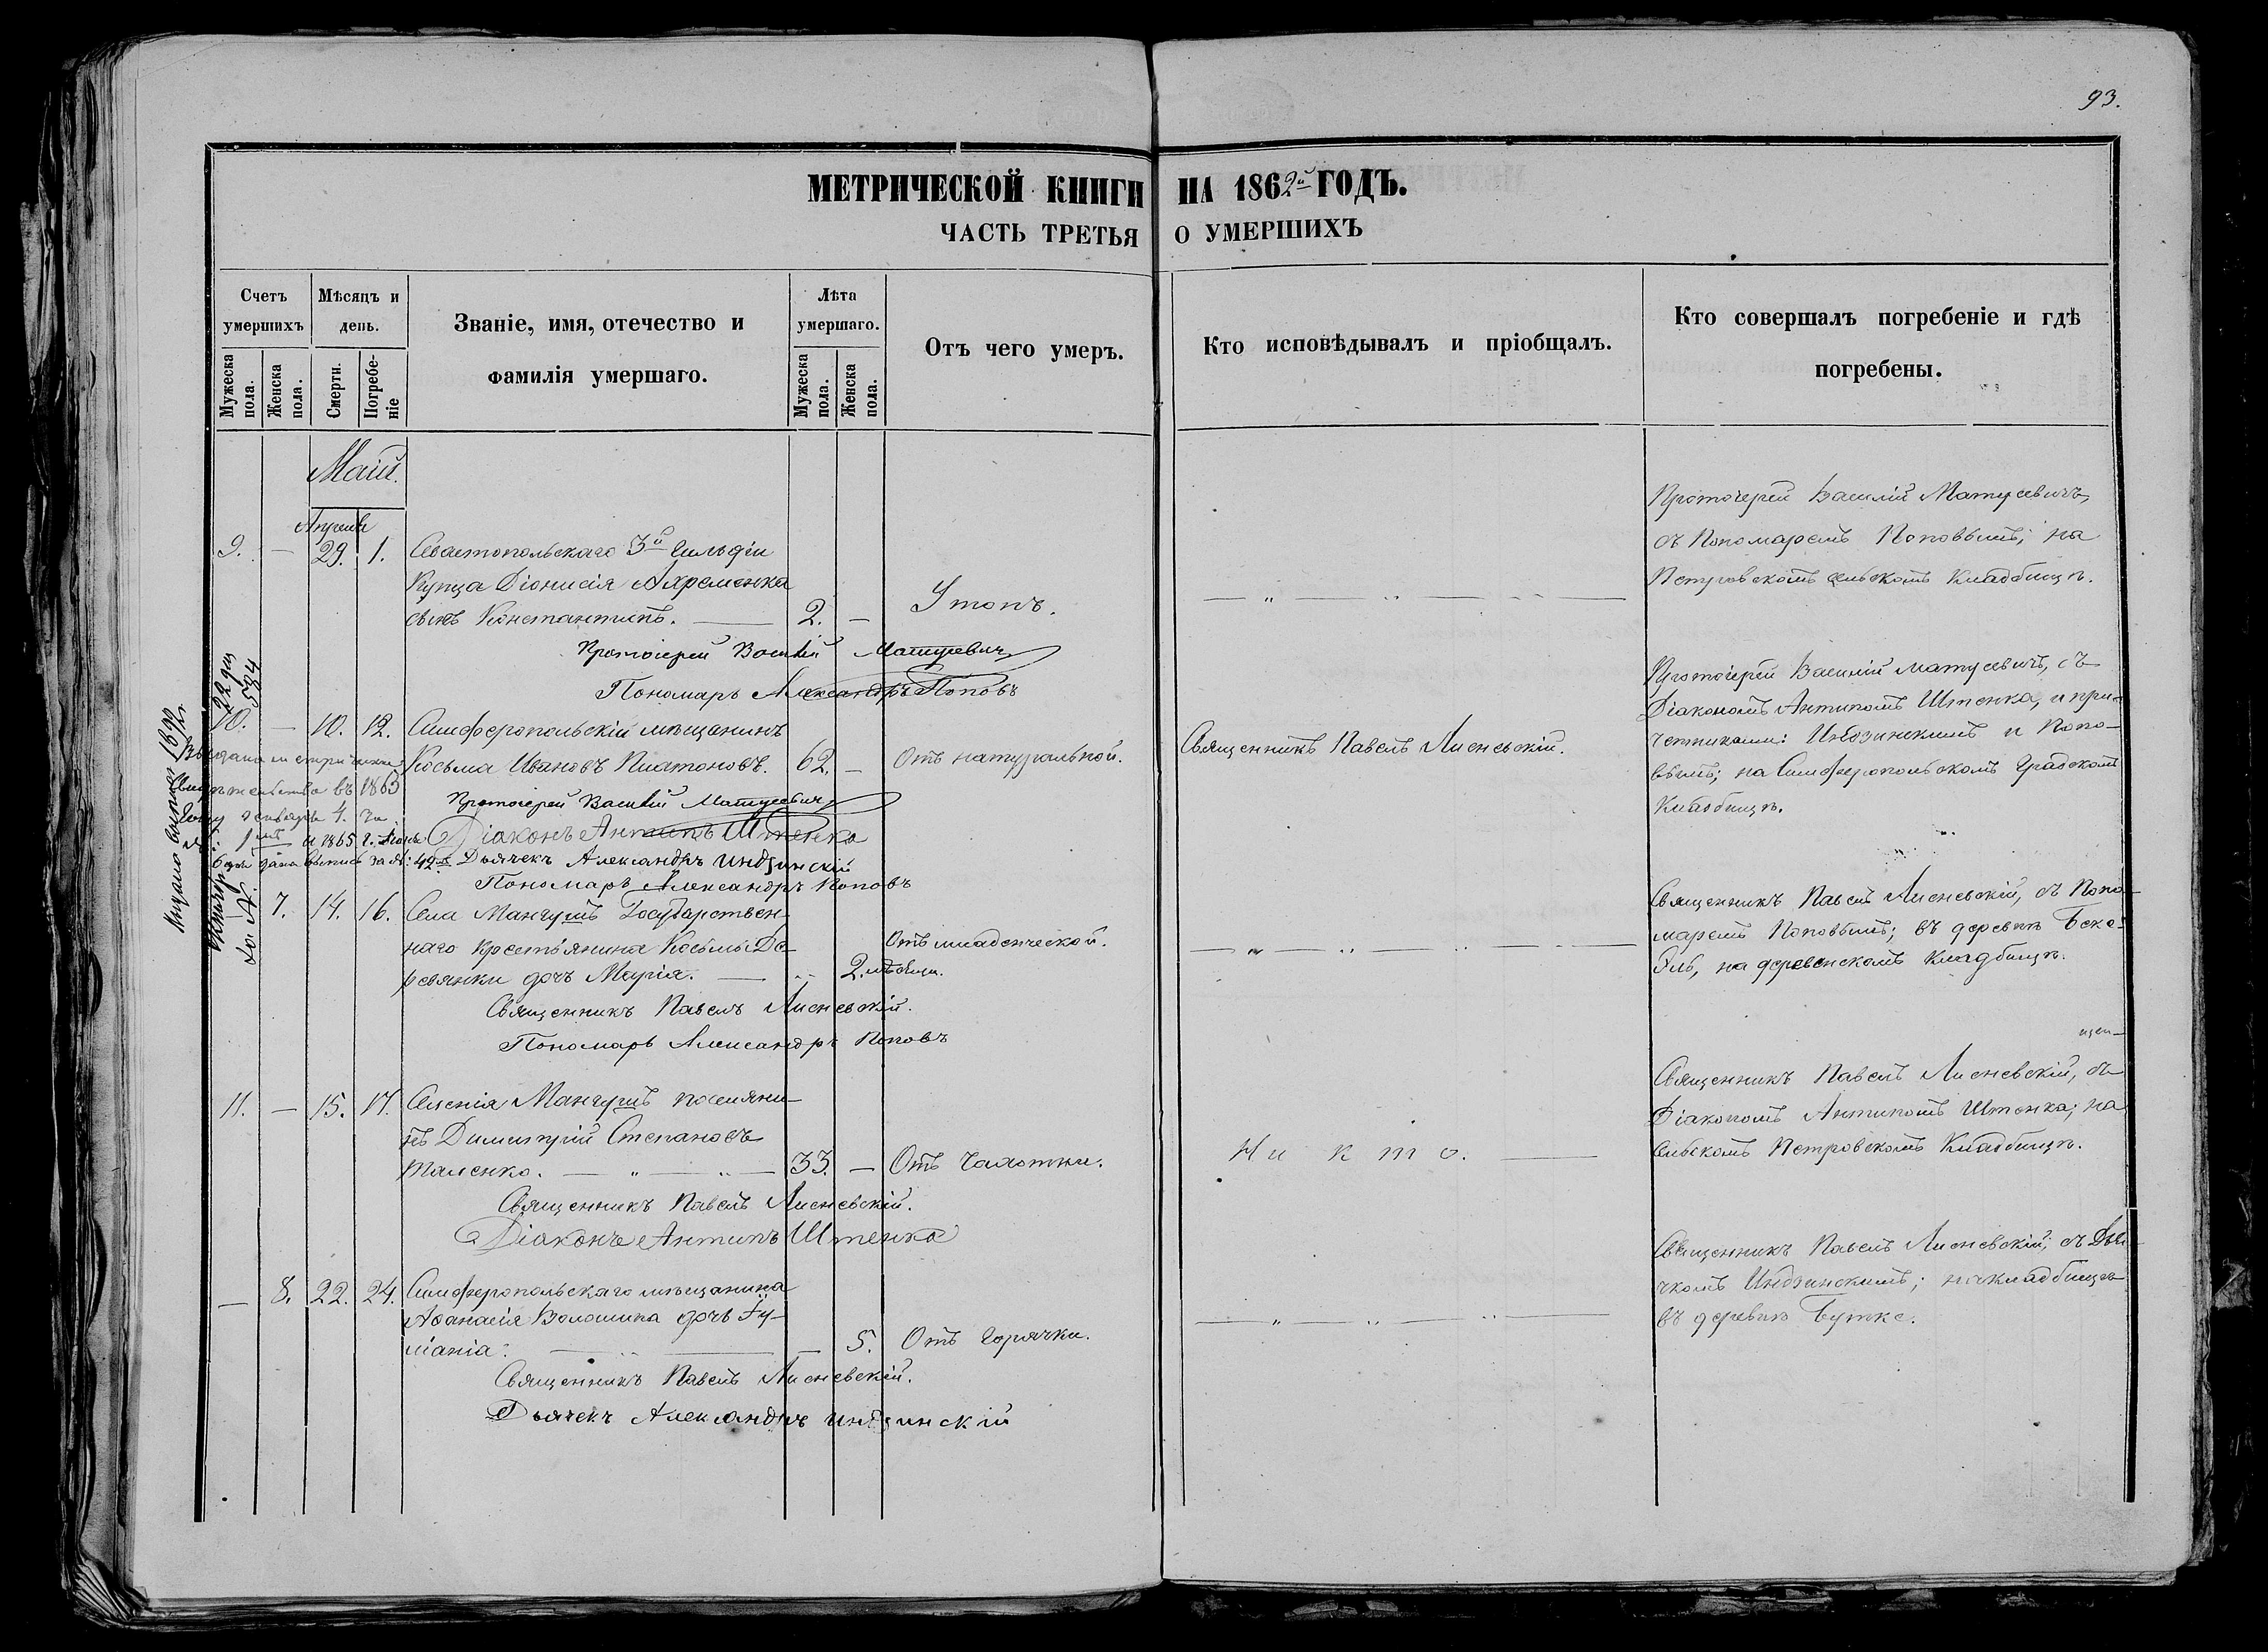 93.
МЕТРИЧЕСКОЙ КНИГИ НА 1862й ГОДЪ.
ЧАСТЬ ТРЕТЬЯ О УМЕРШИХЪ
Счетъ умершихъ
Мужеска пола.
Женска пола.
Мѣсяцъ и день.
Смерти.
Погребеніе
Званіе, имя, отечество и
фамилія умершаго.
Лѣта умершаго.
Мужеска пола.
Женска пола.
Отъ чего умеръ.
Кто исповѣдывалъ и пріобщалъ.
Кто совершалъ погребеніе и гдѣ
погребены.
Маій.
Апреля
9. — 29. 1. Севастопольскаго 3й Гильдіи
Купца Діонисія Ахременка
сынъ Константинъ. — 2. — Утопъ.
Протоіерей Василій Матусевичъ
съ Пономаремъ Поповымъ; на
Петровскомъ сельскомъ кладбищѣ.
Протоіерей Василій Матусевич
Пономарь Александръ Поповъ
10. — 10. 12. Симферопольскій мѣщанинъ
Косьма Ивановъ Платоновъ. 62. — Отъ натуральной.
Священникъ Павелъ Лисневскій.
Протоіерей Василій Матусевичъ, съ
Діакономъ Антипомъ Штенка, и при-
четниками: Индзинскимъ и Попо-
вымъ; на Симферопольскомъ Градскомъ
Кладбищѣ.
Протоіерей Василій Матусевич
Діаконъ Антипъ Штенка
Дьячекъ Александръ Индзинскій
Пономарь Александръ Поповъ
22 дек
534
1863
1865
— 7. 14. 16. Села Мангушъ Государствен-
наго крестьянина Косьмы Де-
ревянки дочь Марія. — 2. мѣсяцы. Отъ младенческой.
Священникъ Павелъ Лисневскій, съ Поно-
маремъ Поповымъ; въ деревнѣ
на деревенскомъ кладбищѣ.
Священникъ Павелъ Лисневскій.
Пономарь Александръ Поповъ
11. — 15. 17. Селенія Мангушъ поселяни-
нъ Димитрій Степановъ
Таленко. — 33. — Отъ Чахотки.
Н и к т о.
Священникъ Павелъ Лисневскій, съ
Діакономъ Антипомъ Штенка; на
Сельскомъ Петровскомъ Кладбищѣ.
Священникъ Павелъ Лисневскій.
Діаконъ Антипъ Штенка
— 8. 22. 24. Симферопольскаго мѣщанина
Афанасія Волошина дочь Іу-
ліанія. — 5. Отъ Горячки.
Священникъ Павелъ Лисневскій, съ Дья-
чкомъ Индзинскимъ; на кладбищѣ
въ деревнѣ Бутке.
Священникъ Павелъ Лисневскій.
Дьячекъ Александръ Индзинскій